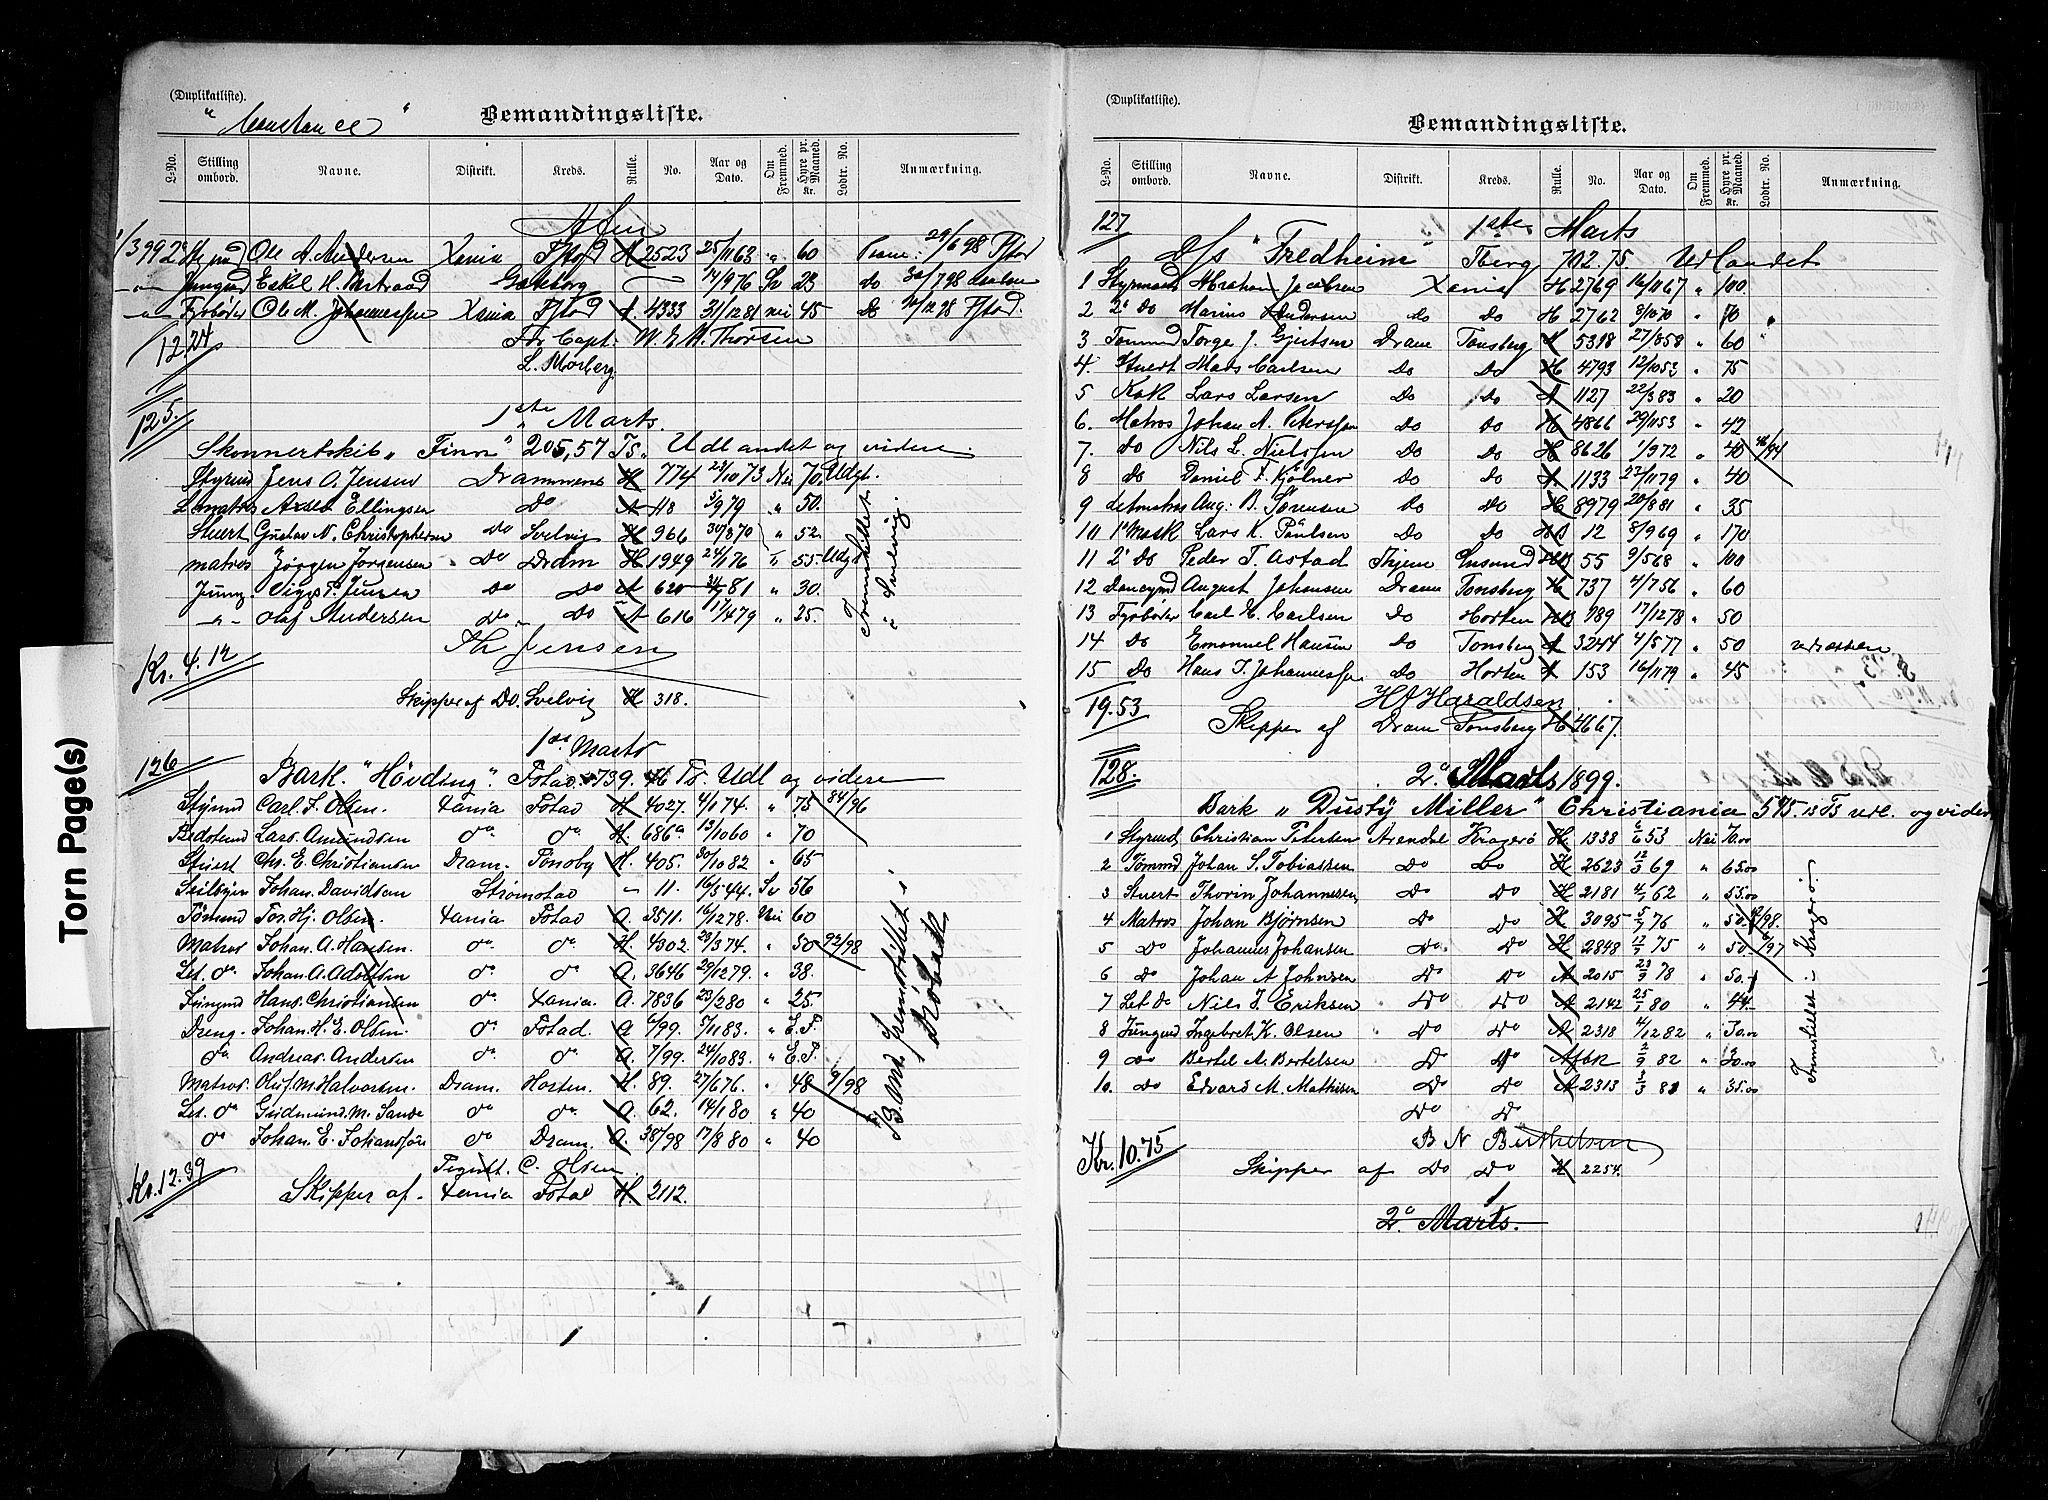 Torn Page(s)
(Duplikatliste).
" Constance "
Bemandingsliste.
L-No. Stilling ombord. Navne. Distrikt. Kreds. Rulle. No. Aar og Dato. Om Fremmed. Hyre pr. Maaned. Kr. Lodtr. No. Anmærkning.
Ole A. Andersen Xania Fstad A 2523 25/11 63 " 60 29/6 98 Fstad
Jungmd Eskil H. Göteborg 14/9 76 Sv 23 do 30/7 98
Fyrbøder Ole M. Johannessen Xania Fstad A. 4333 31/12 81 nei 45 do Fstad.
12.24 For Capt. W. E. M. Thorsen
L. Morberg.
125. 1ste Marts.
Skonnertskib " Finn " 205,57 Ts. Udlandet og videre.
Styrmd Jens O. Jensen Drammen H 774 23/10 73 Nei 70. Udgt.
Lmatros Axel Ellingsen do A 48 5/9 79 " 50.
Stuert Gustav N. Christophersen Do Svelvig H 966 30/8 70 " 52.
Matros Jørgen Jørgensen Do Dram H 1949 24/1 76 55. Udgt
Jung. Viggo F. Jensen Do Do A 620 81 " 30.
-"- Olaf Andersen Do Do A 616 17/4 79 " 25.
Fremstillet i Svelvig.
Kr. 4.12 Jensen
Skipper af Do. Svelvig H 318.
126 1ste Marts
Bark. "Hövding". Fstad 739. 46 Ts. Udl og videre
Styrmd Carl F. Olsen. Xania Fstad H. 4027. 4/1 74. " 75 84/96
Bedstmd Lars. Amundsen do do H. 686a 13/10 60 " 70
Stuert Chr. E. Christiansen Dram. Tönsbg H. 405. 30/10 82 " 65
Seilsyer Johan. Davidsen Strømstad - 11. 16/5 44. Sv 56
Tömmd Tor. Hj. Olsen Xania Fstad A. 3511. 16/12 78. Nei 60
Matros Johan. A. Hansen. do do H. 4302. 23/3 74. " 50 92/98
Let. do Johan. A. Adolfsen do do A. 3646 29/12 79. " 38.
Jungmd Hans. Christiansen do Xania. A. 7836 23/2 80 " 25.
Dreng. Johan. H. E. Olsen. do Fstad. A 6/99. 5/11 83. " E.F.
do Andreas. Andersen do do A. 7/99. 24/10 83. " E.F.
Matros. Oluf. M. Halvorsen. Dram. Horten. H. 89. 27/6 76. " 48 9/98
Let. do Gudmund. M. Sande do do A. 62. 14/1 80 " 40
do Johan. E. Johansson do Dram. A. 38/98 17/8 80 " 40
B. Md. fremstillet i Drøbak
Kr. 12.39 C. Olsen.
Skipper af. Xania Fstad H. 2112.
(Duplikatliste).
Bemandingsliste.
L-No. Stilling ombord. Navne. Distrikt. Kreds. Rulle. No. Aar og Dato. Om Fremmed. Hyre pr. Maaned. Kr. Lodtr. No. Anmærkning.
127 1ste Marts
D/s " Fredheim " Tberg 702.75. Udlandet
1 Styrmand Abraham Jacobsen Xania H 2769 16/11 67 " 100.
2 2' do Marius Andersen do do H 2762 9/10 70 " 70
3 Tømmd Torge J. Gjertsen Dram Tønsberg H 5398 27/8 58 " 60
4. Stuert Mads Carlsen Do Do H 4793 12/10 53 " 75
5 Kok Lars Larsen do do A 1127 22/3 83 " 20
6. Matros Johan A. Peterssen do do H 4866 29/11 53 " 42
7. do Nils L. Nielssen Do Do H 8626 1/9 72 " 40 46/94
8 do Daniel F. Kølner do do A 1133 22/11 79 " 40
9 Letmatros Aug: B. Sørensen do do H 8979 20/8 81 " 35
10 1' Mask Lars K. Paulsen do do 12 8/9 69 " 170
11 2' do Peder T. Astad Skjem 55 9/5 68 " 100
12 Donkeymd August Johansen Dram Tønsberg H. 737 4/7 56 " 60
13 Fyrbøder Carl H. Carlsen do Horten 789 17/12 78 " 50
14 Do Emanuel Hansen Do Tønsberg A 3244 4/5 77 " 50
15 do Hans T. Johannessen do Horten A 153 16/11 79 " 45
19.53 Haraldsen
Skipper af Dram Tønsberg H 4667.
128. 2' Marts 1899.
Bark " Dusty Miller " Christiania 575.15 Ts udl. og videre
1 Styrmd Christian Petersen Arendal Kragerø H 1338 2/6 53 Nei 70.00
2 Tømmd Johan S. Tobiassen Do Do H 2623 12/3 69 " 65.00
3 Stuert Thorin Johannessen Do Do H 2181 62 " 55.00
4 Matros Johan Bjørnsen Do Do H 3095 5/7 76 " 50. /98.
5 Do Johannes Johansen Do. Do H 2848 75 " 50. /97
6 Do Johan A Johnsen Do Do A 2015 23/9 78 " 50.
7 Let Do Nils J. Eriksen Do Do A 2142 80 " 44.
8 Jungmd Ingebret K. Olsen Do Do A 2318 4/12 82 " 30.00
9 do Bertel A. Bertelsen Do Do Afbk 2/9 82 " 30.00
10. do Edvard M. Mathisen Do Do A 2313 3/3 80 " 35.00
Do Do
Fremstillet i Kragerø.
Kr. 10.75 B N Berthelsen
Skipper af Do Do H 2254.
2' Marts.